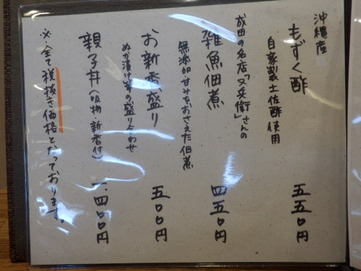 沖縄産
もずく酢 五五〇円
自家製土佐酢使用
成田の名店「又兵衛」さんの
雑魚佃煮 四五〇円
無添加甘みをおさえた佃煮
お新香盛り 五〇〇円
ぬか漬け等の盛り合わせ
親子丼（吸物・新香付） 一、四〇〇円
※全て税抜き価格となっております。